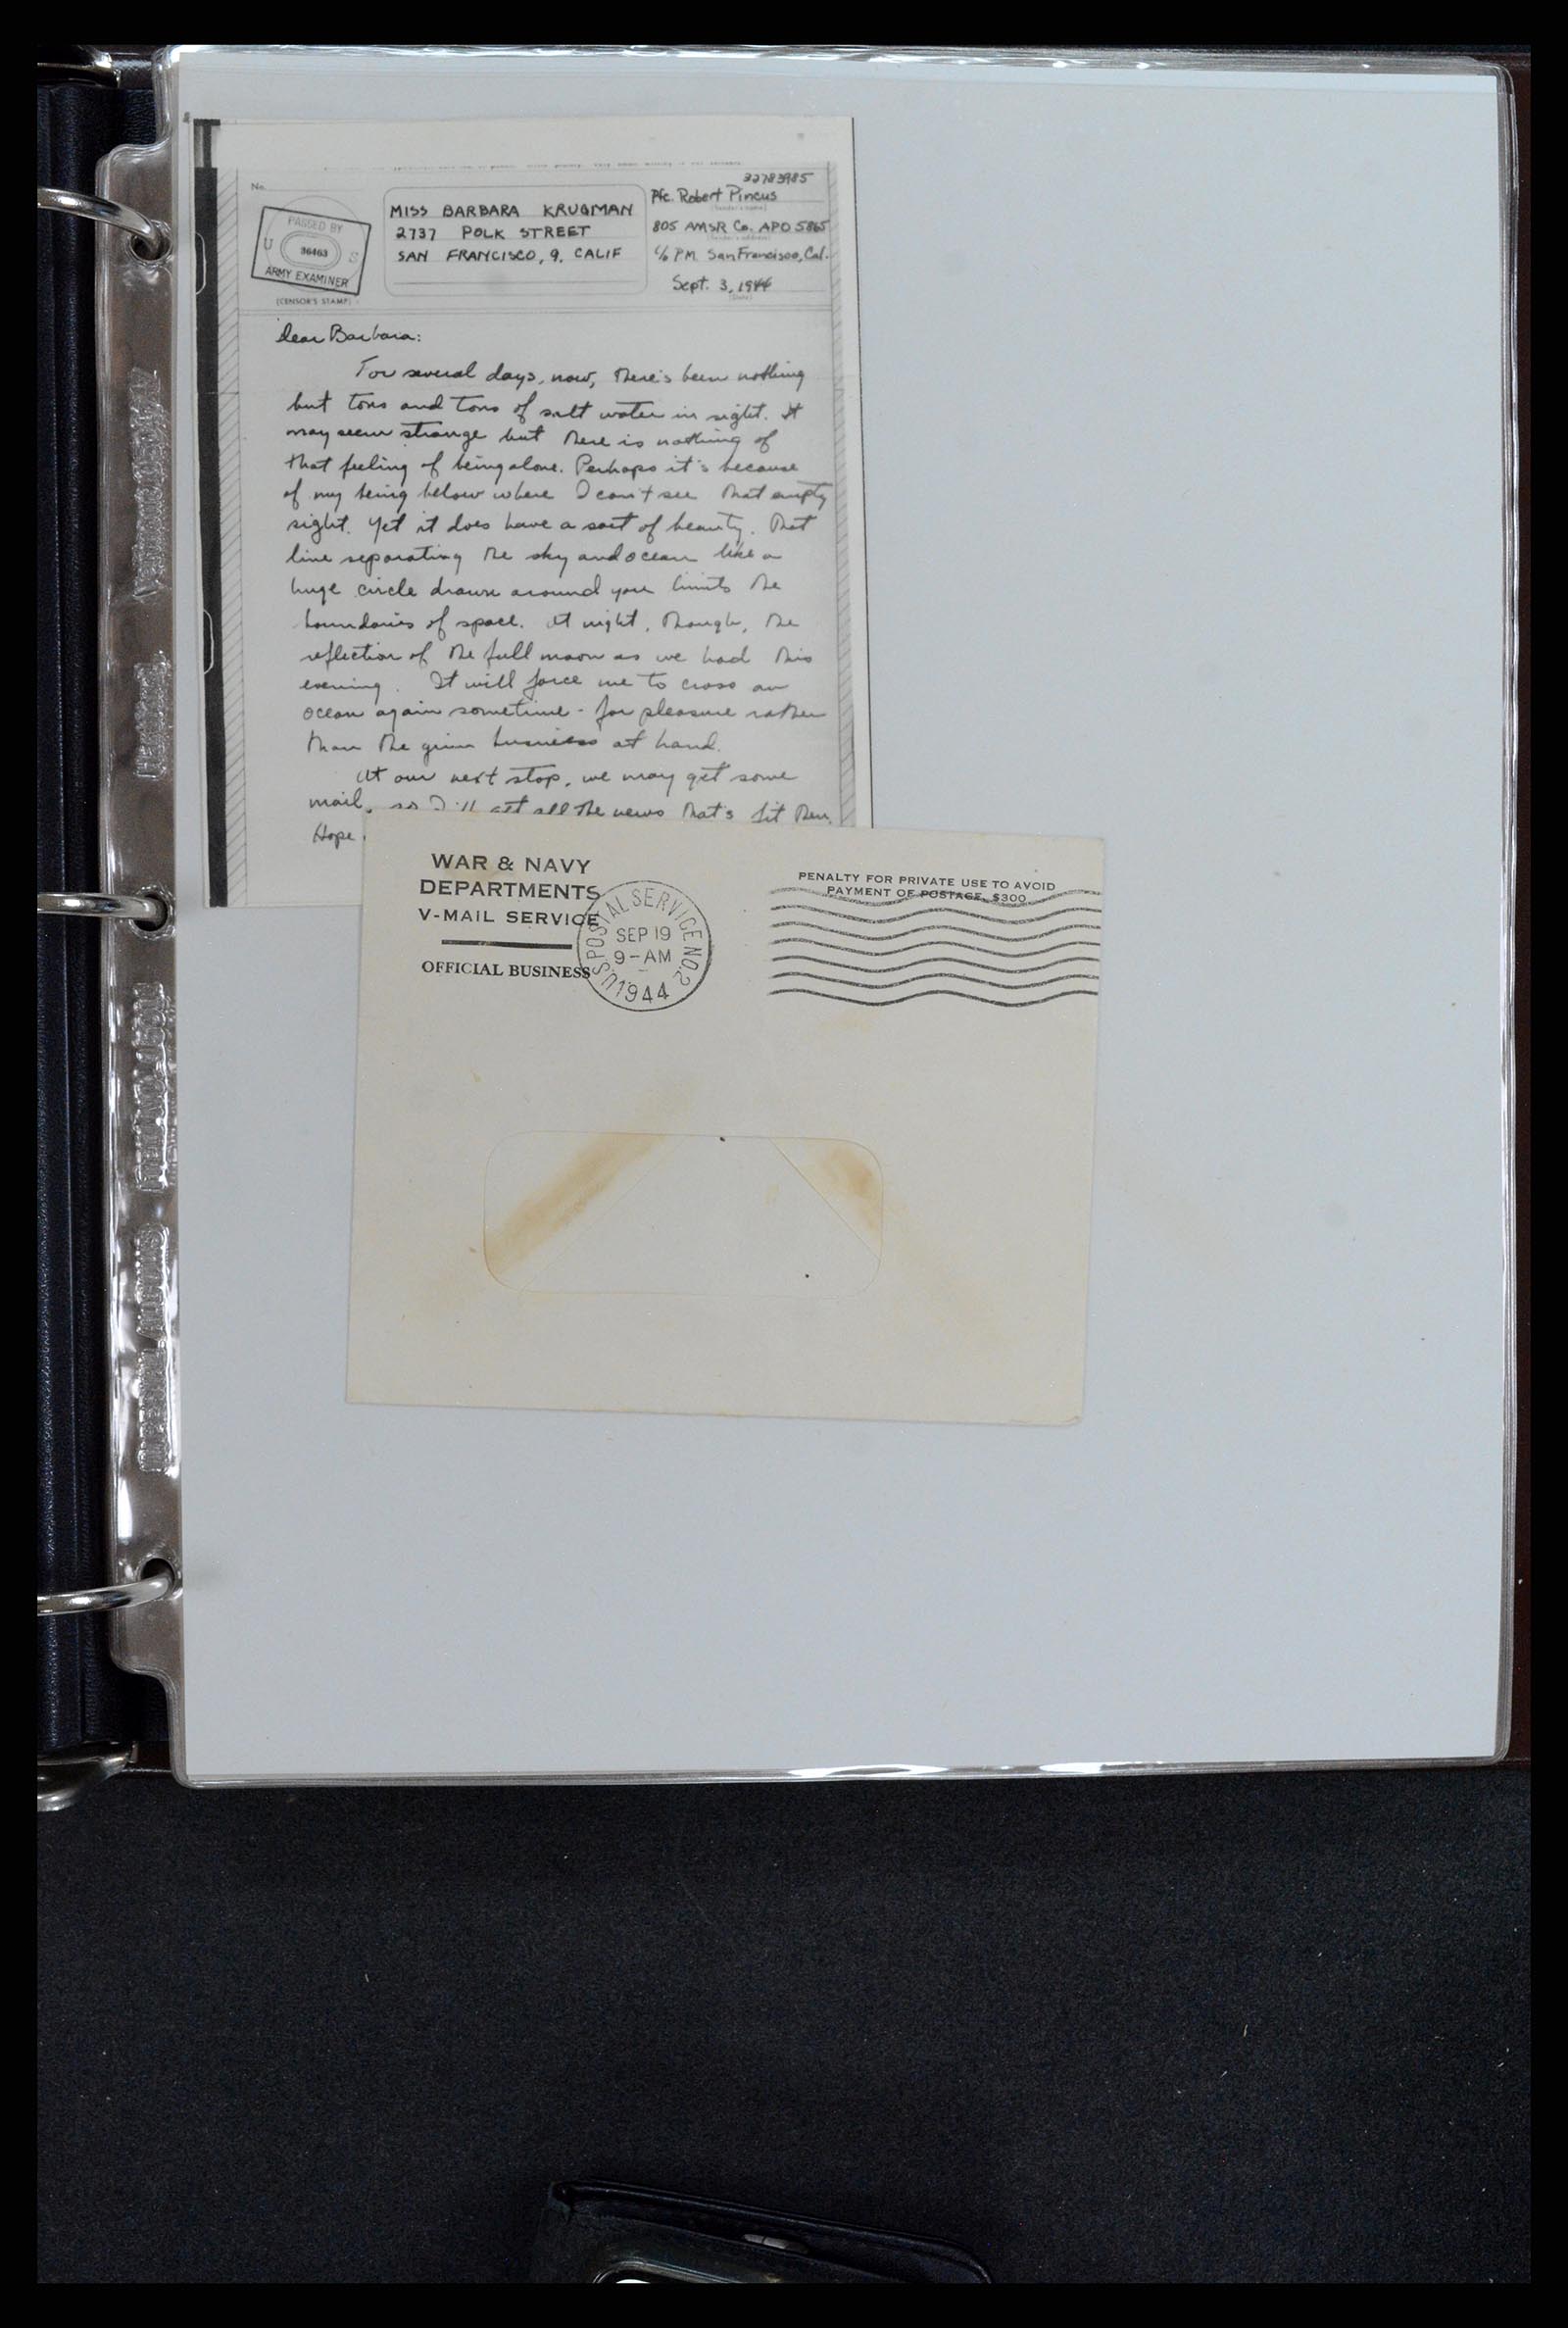 No.
PASSED BY
U 36463 S
ARMY EXAMINER
(CENSOR'S STAMP)
MISS BARBARA KRUGMAN
2737 POLK STREET
SAN FRANCISCO, 9, CALIF
32783985
Pfc. Robert Pincus
(Sender's name)
805 AMSR Co. APO 5865
(Sender's address)
c/o P.M. San Francisco, Cal.
Sept. 3, 1944
(Date)
Dear Barbara:
For several days, now, there's been nothing
but tons and tons of salt water in sight. It
may seem strange but there is nothing of
that feeling of being alone. Perhaps it's because
of my being below where I can't see that empty
sight. Yet it does have a sort of beauty. That
line separating the sky and ocean like a
huge circle drawn around you limits the
boundaries of space. At night, though, the
reflection of the full moon as we had this
evening. It will force me to cross an
ocean again sometime - for pleasure rather
than the grim business at hand.
At our next stop, we may get some
mail, so I'll get all the news that's fit then.
Hope
WAR & NAVY
DEPARTMENTS
V-MAIL SERVICE
OFFICIAL BUSINESS
U.S. POSTAL SERVICE NO. 2
SEP 19
9-AM
1944
PENALTY FOR PRIVATE USE TO AVOID
PAYMENT OF POSTAGE, $300